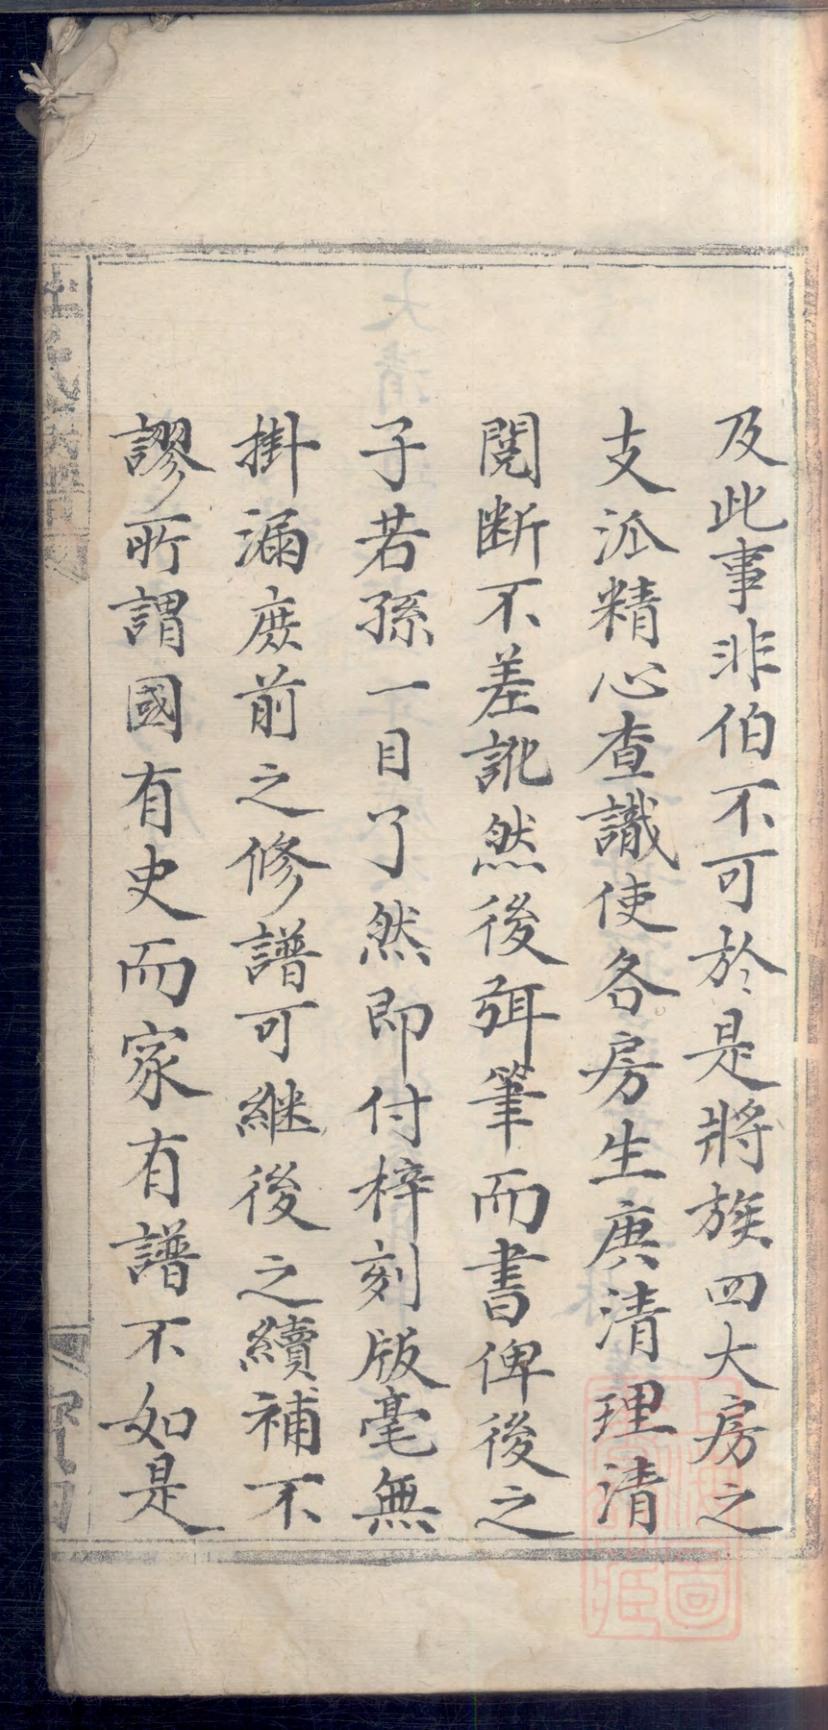 及此事非伯不可於是將族四大房之
支派精心查識使各房生庚清理清
閱断不差訛然後弭筆而書俾後之
子若孫一目了然即付梓刻版毫無
掛漏庶前之修譜可継後之續補不
謬所謂國有史而家有譜不如是